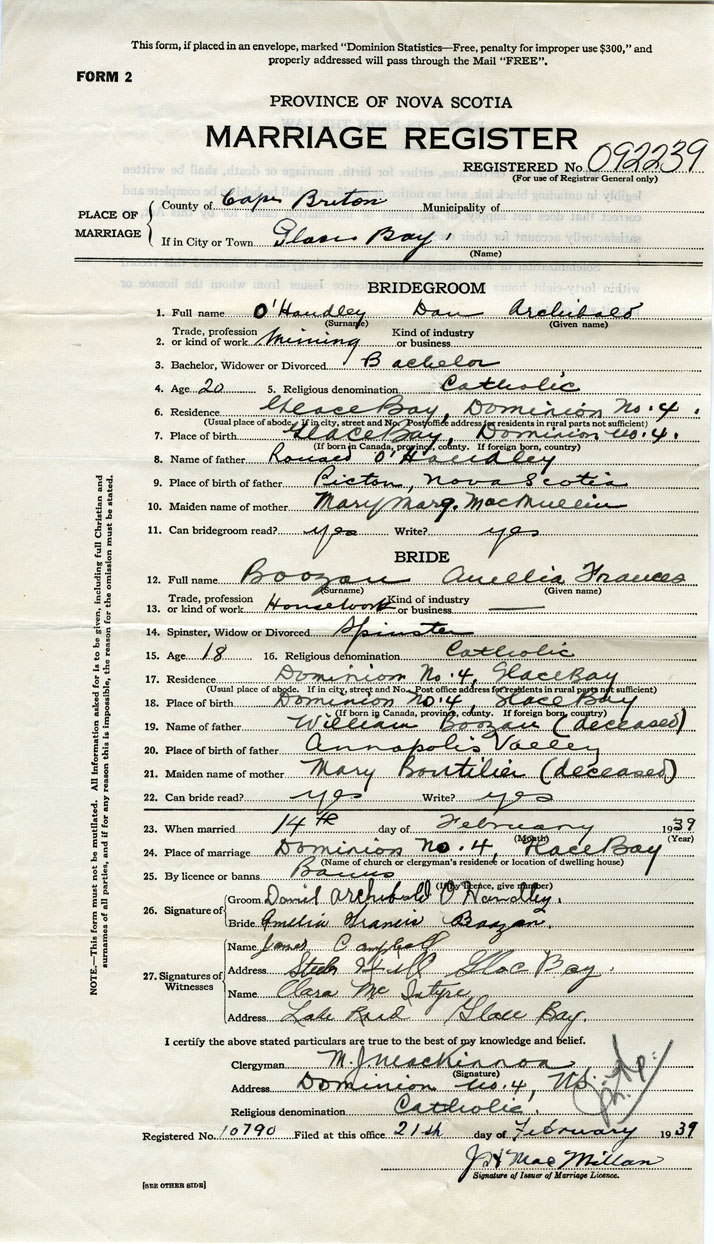 This form, if placed in an envelope, marked "Dominion Statistics—Free, penalty for improper use $300," and
properly addressed will pass through the Mail "FREE".
FORM 2
PROVINCE OF NOVA SCOTIA
MARRIAGE REGISTER
REGISTERED No. 092239
(For use of Registrar General only)
PLACE OF MARRIAGE
County of Cape Breton Municipality of
If in City or Town Glace Bay.
(Name)
BRIDEGROOM
1. Full name O'Handley Dan Archibald
(Surname) (Given name)
2. Trade, profession or kind of work Mining Kind of industry or business
3. Bachelor, Widower or Divorced Bachelor
4. Age 20 5. Religious denomination Catholic
6. Residence Glace Bay, Dominion No. 4.
(Usual place of abode. If in city, street and No. Post office address for residents in rural parts not sufficient)
7. Place of birth Glace Bay, Dominion No. 4.
(If born in Canada, province, county. If foreign born, country)
8. Name of father Ronald O'Handley
9. Place of birth of father Pictou, Nova Scotia
10. Maiden name of mother Mary Marg. MacMullin
11. Can bridegroom read? yes Write? yes
BRIDE
12. Full name Boozan Amelia Frances
(Surname) (Given name)
13. Trade, profession or kind of work Housework Kind of industry or business —
14. Spinster, Widow or Divorced Spinster
15. Age 18 16. Religious denomination Catholic
17. Residence Dominion No. 4, Glace Bay
(Usual place of abode. If in city, street and No. Post office address for residents in rural parts not sufficient)
18. Place of birth Dominion No. 4, Glace Bay
(If born in Canada, province, county. If foreign born, country)
19. Name of father William Boozan (deceased)
20. Place of birth of father Annapolis Valley
21. Maiden name of mother Mary Boutilier (deceased)
22. Can bride read? yes Write? yes
23. When married 14th day of February 1939
(Month) (Year)
24. Place of marriage Dominion No. 4, Glace Bay
(Name of church or clergyman's residence or location of dwelling house)
25. By licence or banns Banns
(If by licence, give number)
26. Signature of
Groom Daniel Archibold O'Handley.
Bride Amelia Francis Boozan.
27. Signatures of Witnesses
Name James Campbell
Address Steele Hill Glace Bay.
Name Clara McIntyre
Address Lake Road Glace Bay.
I certify the above stated particulars are true to the best of my knowledge and belief.
Clergyman M. J. MacKinnon
(Signature)
Address Dominion No. 4, N.S.
Religious denomination Catholic.
Registered No. 10790 Filed at this office 21st day of February 1939
J H MacMillan
Signature of Issuer of Marriage Licence.
[SEE OTHER SIDE]
NOTE.—This form must not be mutilated. All information asked for is to be given, including full Christian and
surnames of all parties, and if for any reason this is impossible, the reason for the omission must be stated.